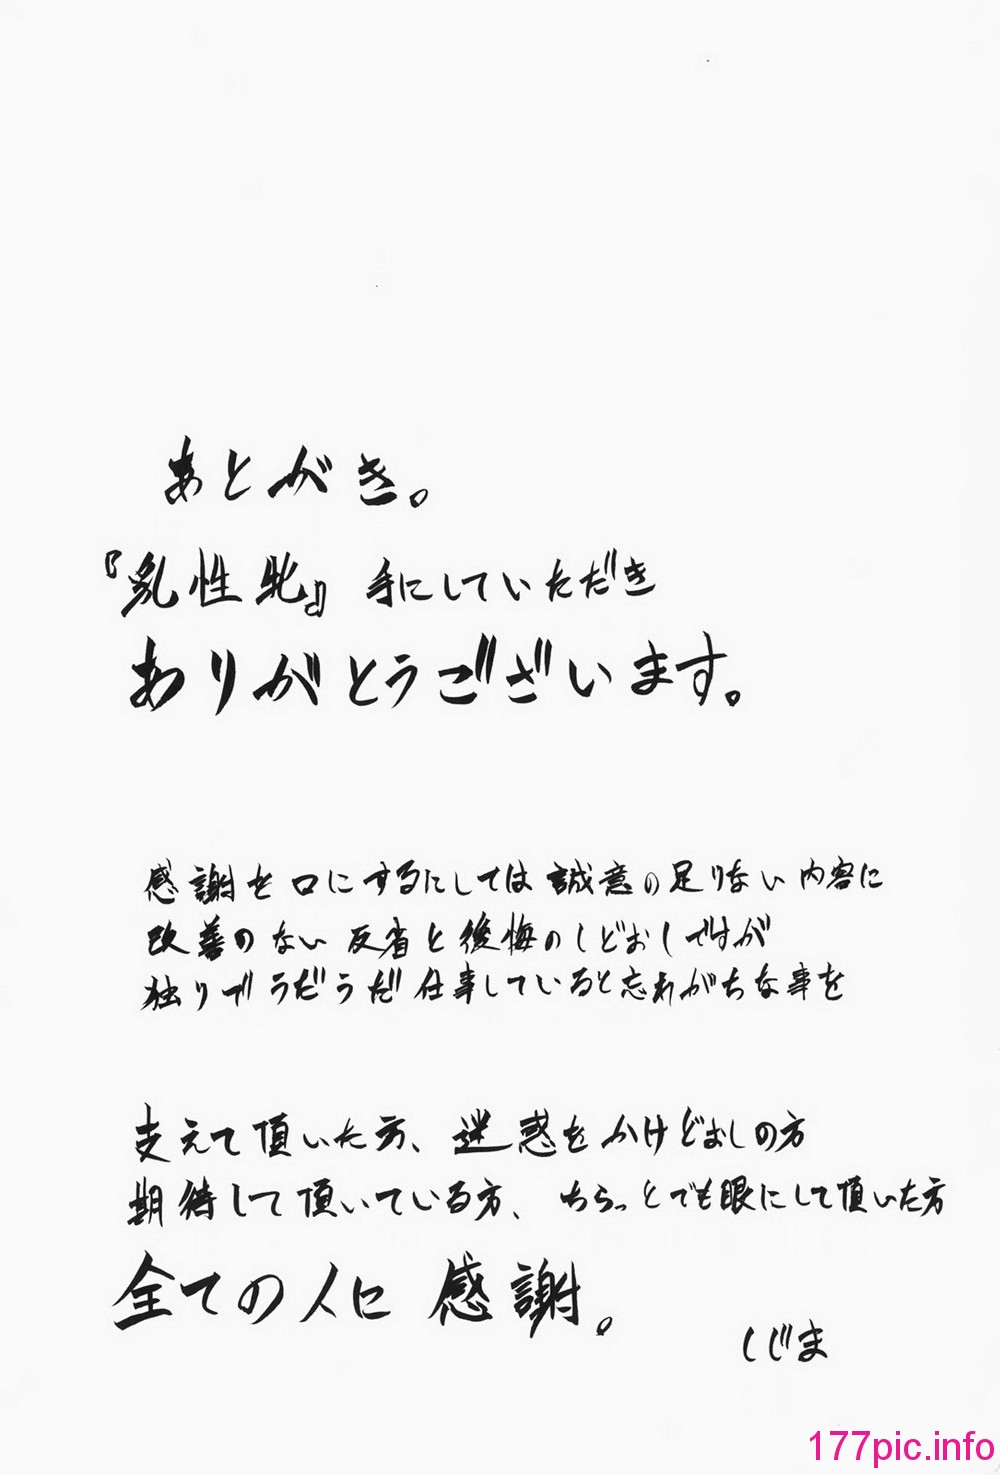 あとがき。
『乳性牝』手にしていただき
ありがとうございます。
感謝を口にするにしては誠意の足りない内容に
改善のない反省と後悔のしどおしですが
独りでうだうだ仕事していると忘れがちな事を
支えて頂いた方、迷惑をかけどおしの方
期待して頂いている方、ちらっとでも眼にして頂いた方
全ての人に感謝。
しじま
177pic.info